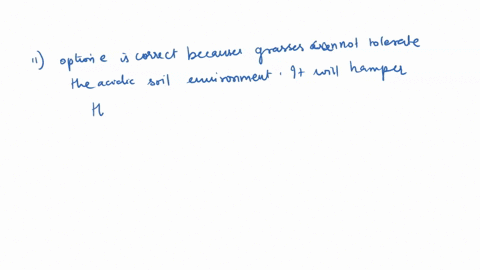 11) option e is correct because grasses cannot tolerate
the acidic soil environment. It will hamper
th